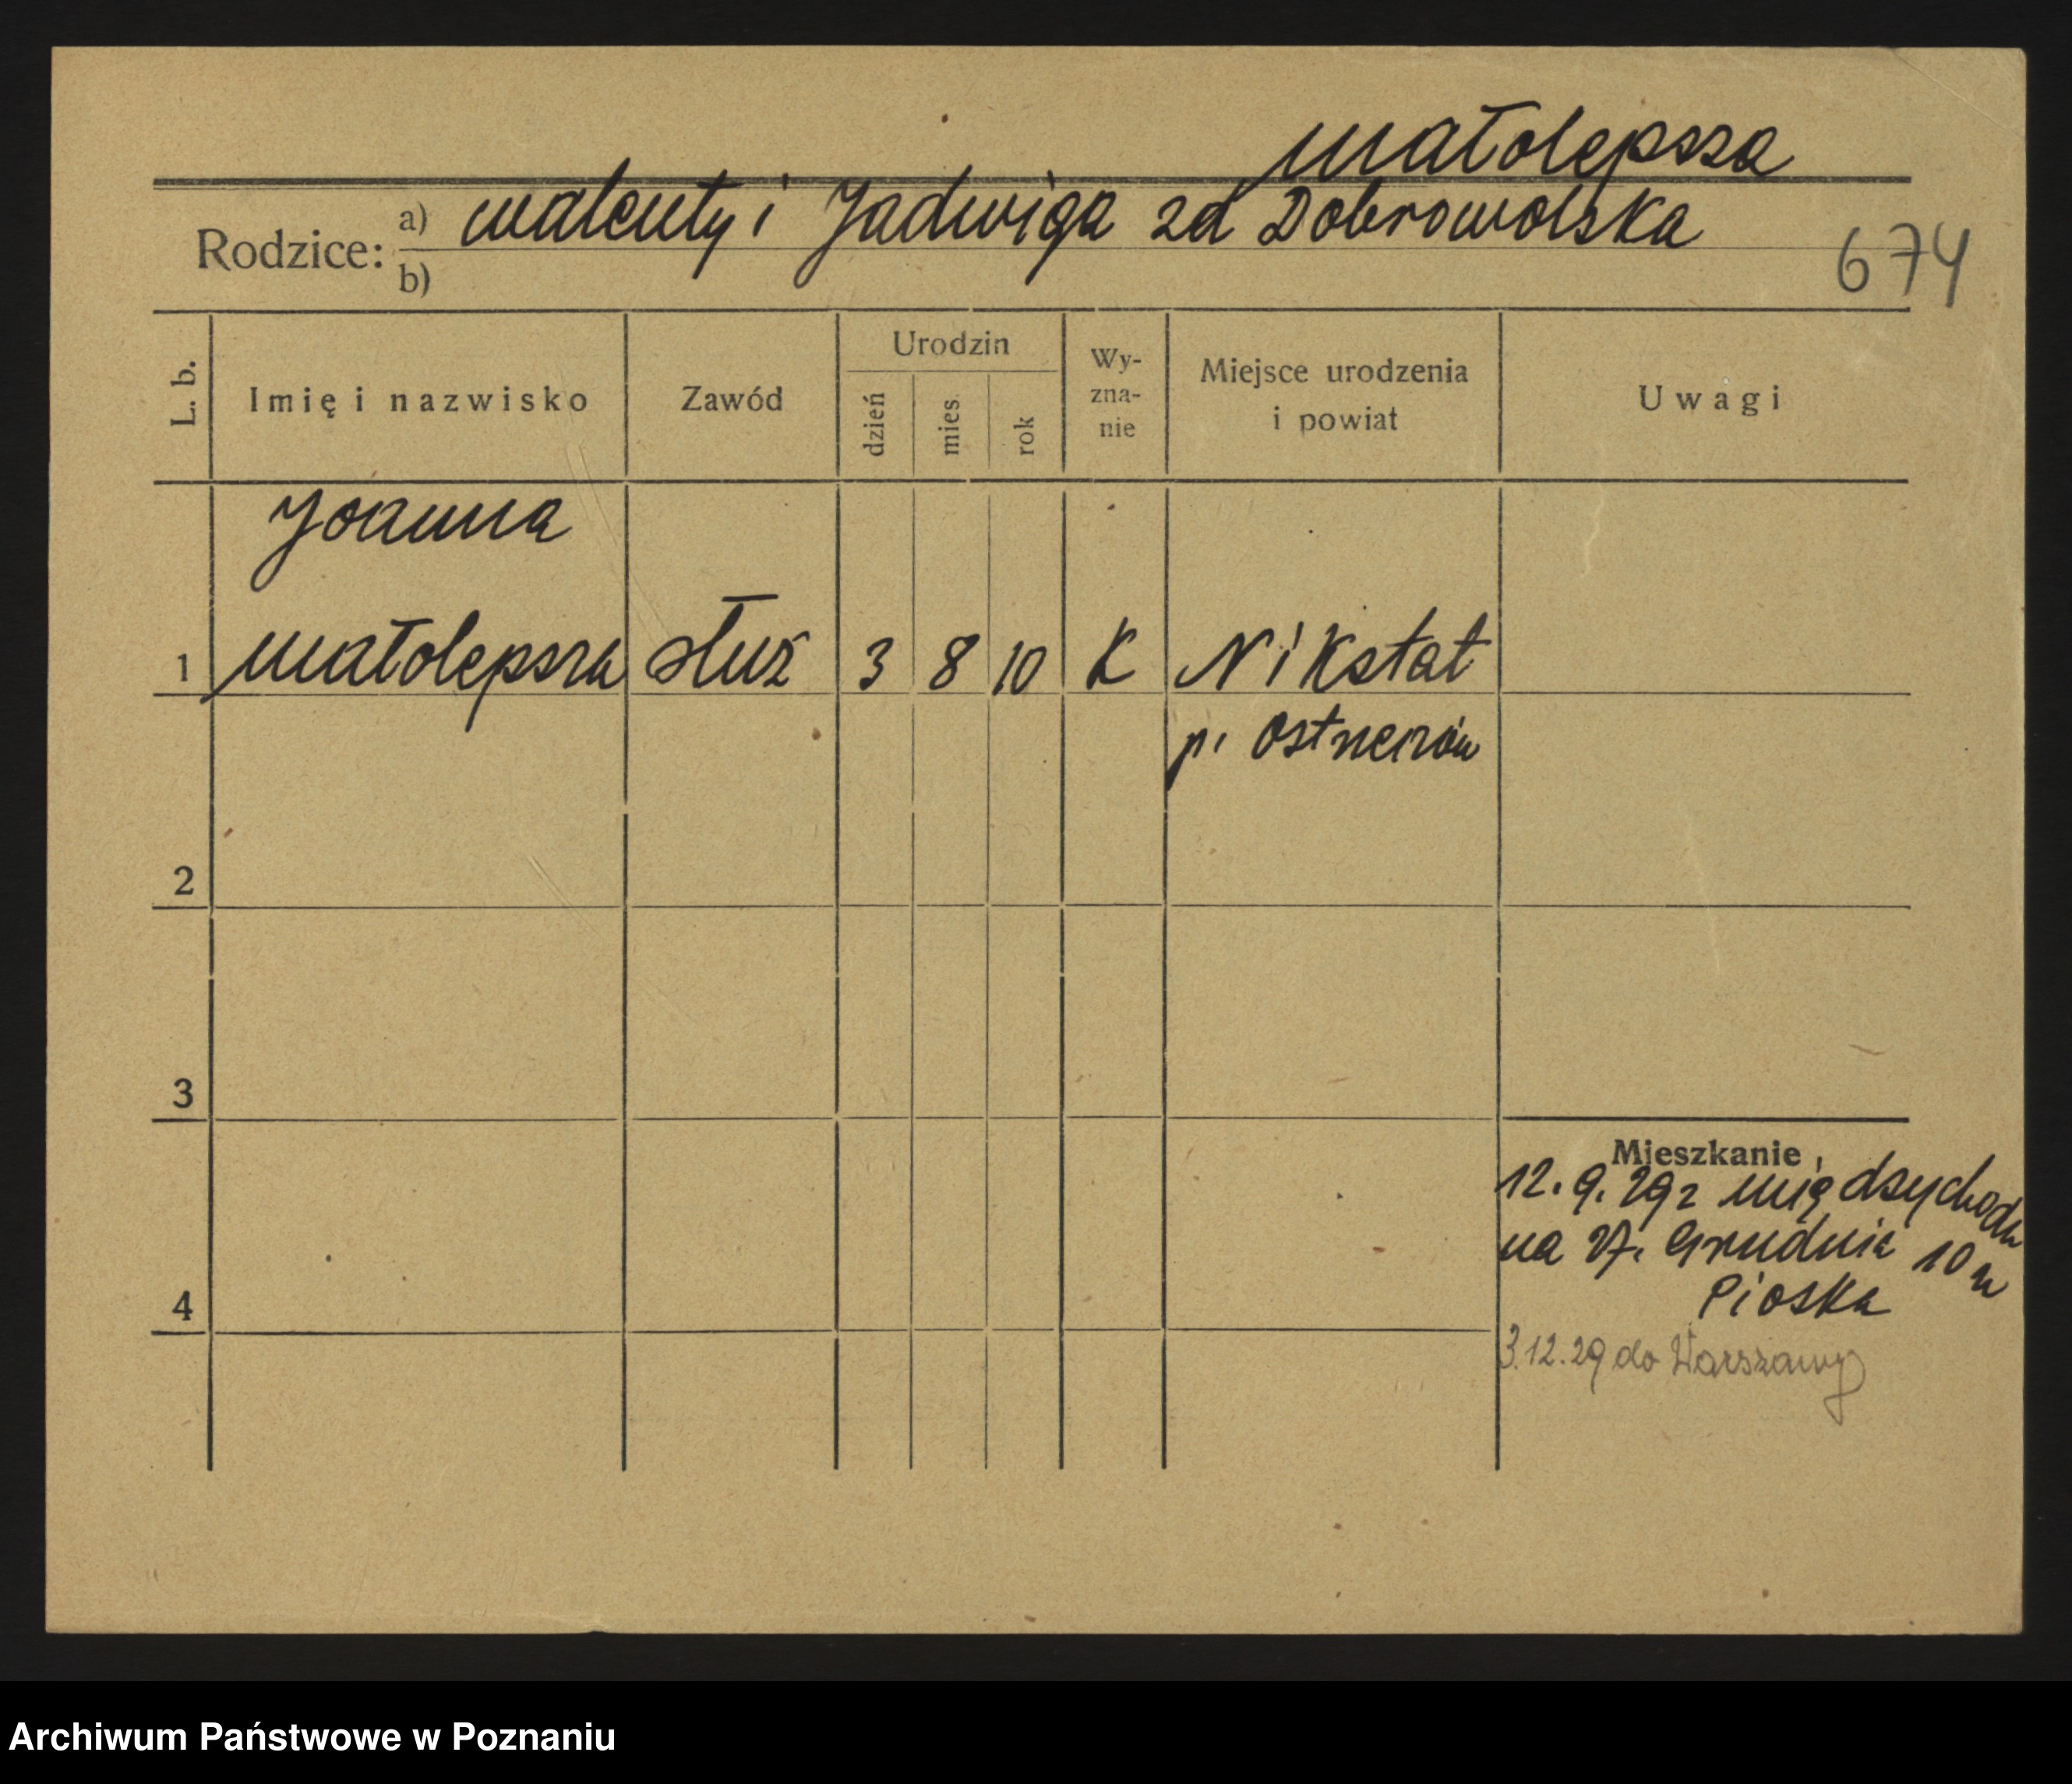 Małolepsza
Rodzice: a) Walenty i Jadwiga zd Dobrowolska
b)
674
L. b.
Imię i nazwisko
Zawód
Urodzin
dzień
mies.
rok
Wy-
zna-
nie
Miejsce urodzenia
i powiat
Uwagi
Joanna
1 Małolepsza służ 3 8 10 K Nikstat
p.
2
3
4
Mieszkanie
12.9.29 z Międzychodu
na 27. Grudnia 10 u
Pioska
3.12.29 do Warszawy
Archiwum Państwowe w Poznaniu